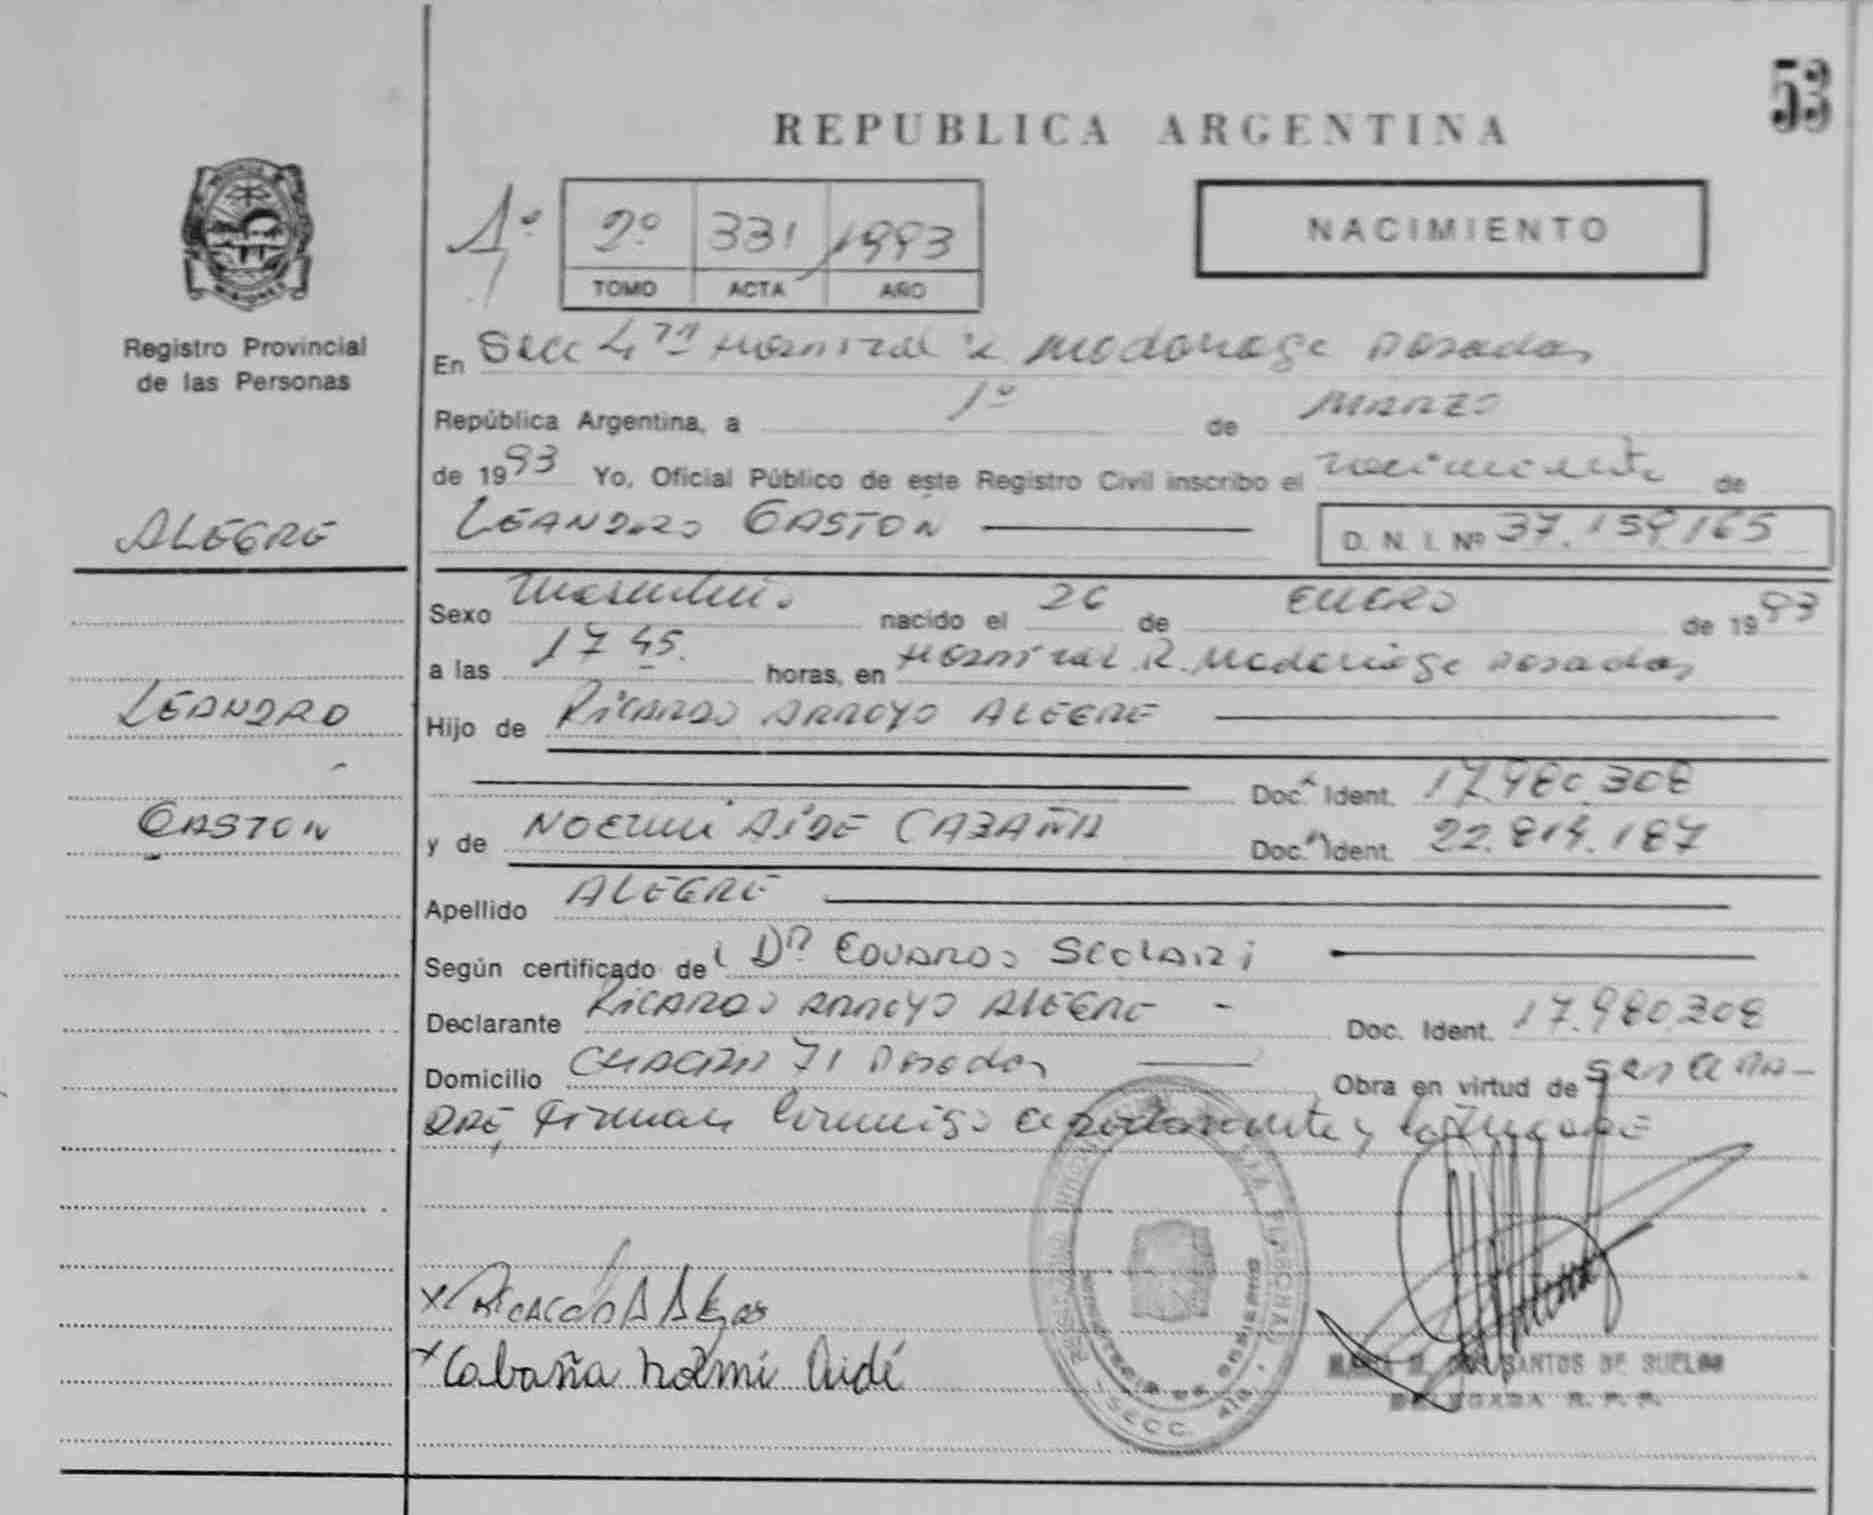 53
REPUBLICA ARGENTINA
1º 2º 331 1993
TOMO ACTA AÑO
NACIMIENTO
MISIONES
Registro Provincial
de las Personas
En Secc 4ta Hospital R. Madariaga Posadas
República Argentina, a 1º de Marzo
de 1993 Yo, Oficial Público de este Registro Civil inscribo el nacimiento de
ALEGRE
LEANDRO GASTON
D. N. I. Nº 37.159.165
Sexo Masculino nacido el 26 de ENERO de 1993
a las 17 45. horas, en Hospital R. Madariaga Posadas
LEANDRO
Hijo de RICARDO ARROYO ALEGRE
Doc. Ident. 17.980.308
GASTON
y de NOEMI AIDE CABAÑA Doc. Ident. 22.814.187
Apellido ALEGRE
Según certificado del Dr EDUARDO SCOLARI
Declarante RICARDO ARROYO ALEGRE - Doc. Ident. 17.980.308
Domicilio CHACRA 71 Posadas Obra en virtud de ser a MA-
DRE, Firman conmigo el declarante y la madre
x Ricardo A Alegre
x Cabaña Noemi Aidé
SANTOS DE SUELDO
R. P. P.
SECC. 4ta.